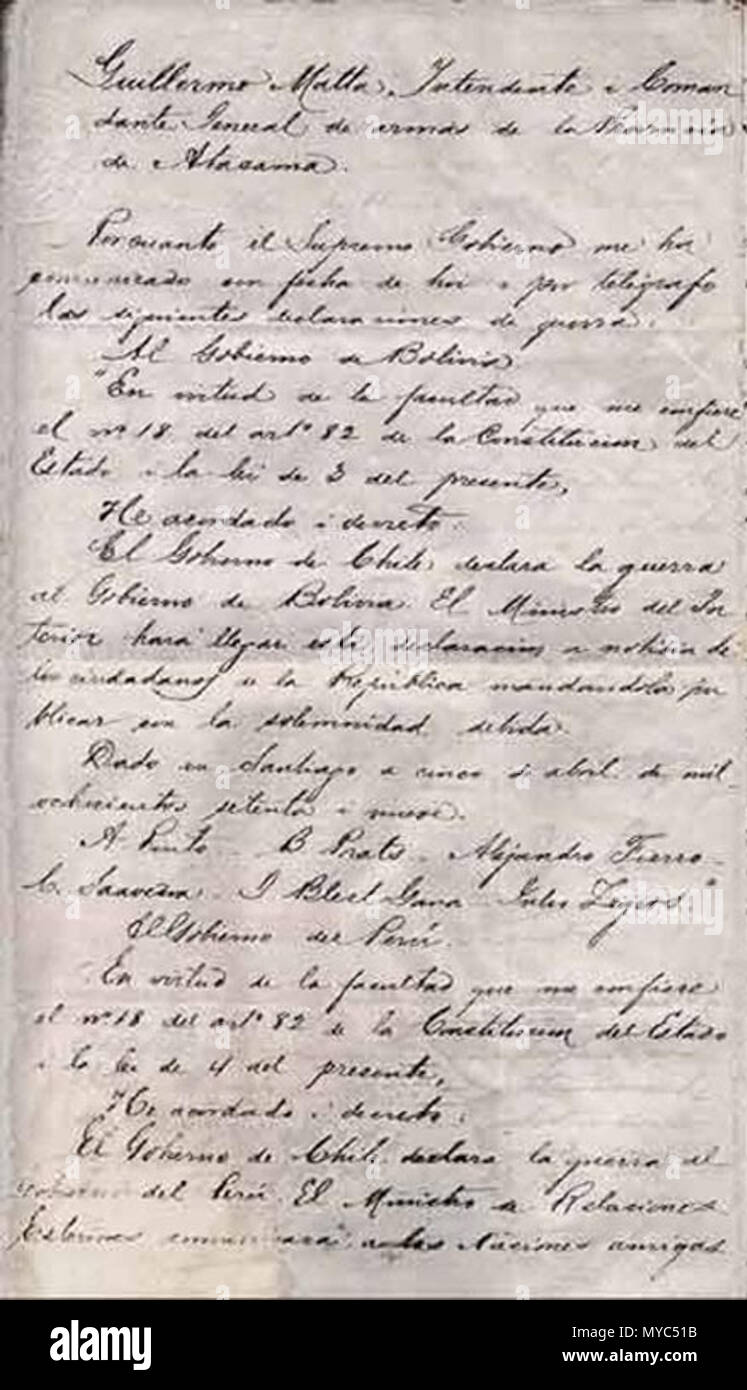 Guillermo Matta, Intendente i Coman
dante General de armas de la Provincia
de Atacama.
Por cuanto el Supremo Gobierno me ha
comunicado con fecha de hoi i por telégrafo
las siguientes declaraciones de guerra:
Al Gobierno de Bolivia
"En virtud de la facultad que me confiere
el nº 18 del artº 82 de la Constitucion del
Estado i la lei de 3 del presente,
He acordado i decreto:
El Gobierno de Chile declara la guerra
al Gobierno de Bolivia. El Ministro del In
terior hará llegar esta declaracion a noticia de
los ciudadanos de la República mandándola pu
blicar con la solemnidad debida.
Dado en Santiago a cinco de abril de mil
ochocientos setenta i nueve.
A Pinto – B Prats – Alejandro Fierro –
C. Saavedra – J. Blest Gana – Julio Zegers."
Al Gobierno del Perú.
"En virtud de la facultad que me confiere
el nº 18 del artº 82 de la Constitucion del Estado
i la lei de 4 del presente,
He acordado i decreto:
El Gobierno de Chile declara la guerra al
Gobierno del Perú. El Ministro de Relaciones
Esteriores comunicará a las Naciones amigas
alamy
Image ID: MYC51B
www.alamy.com